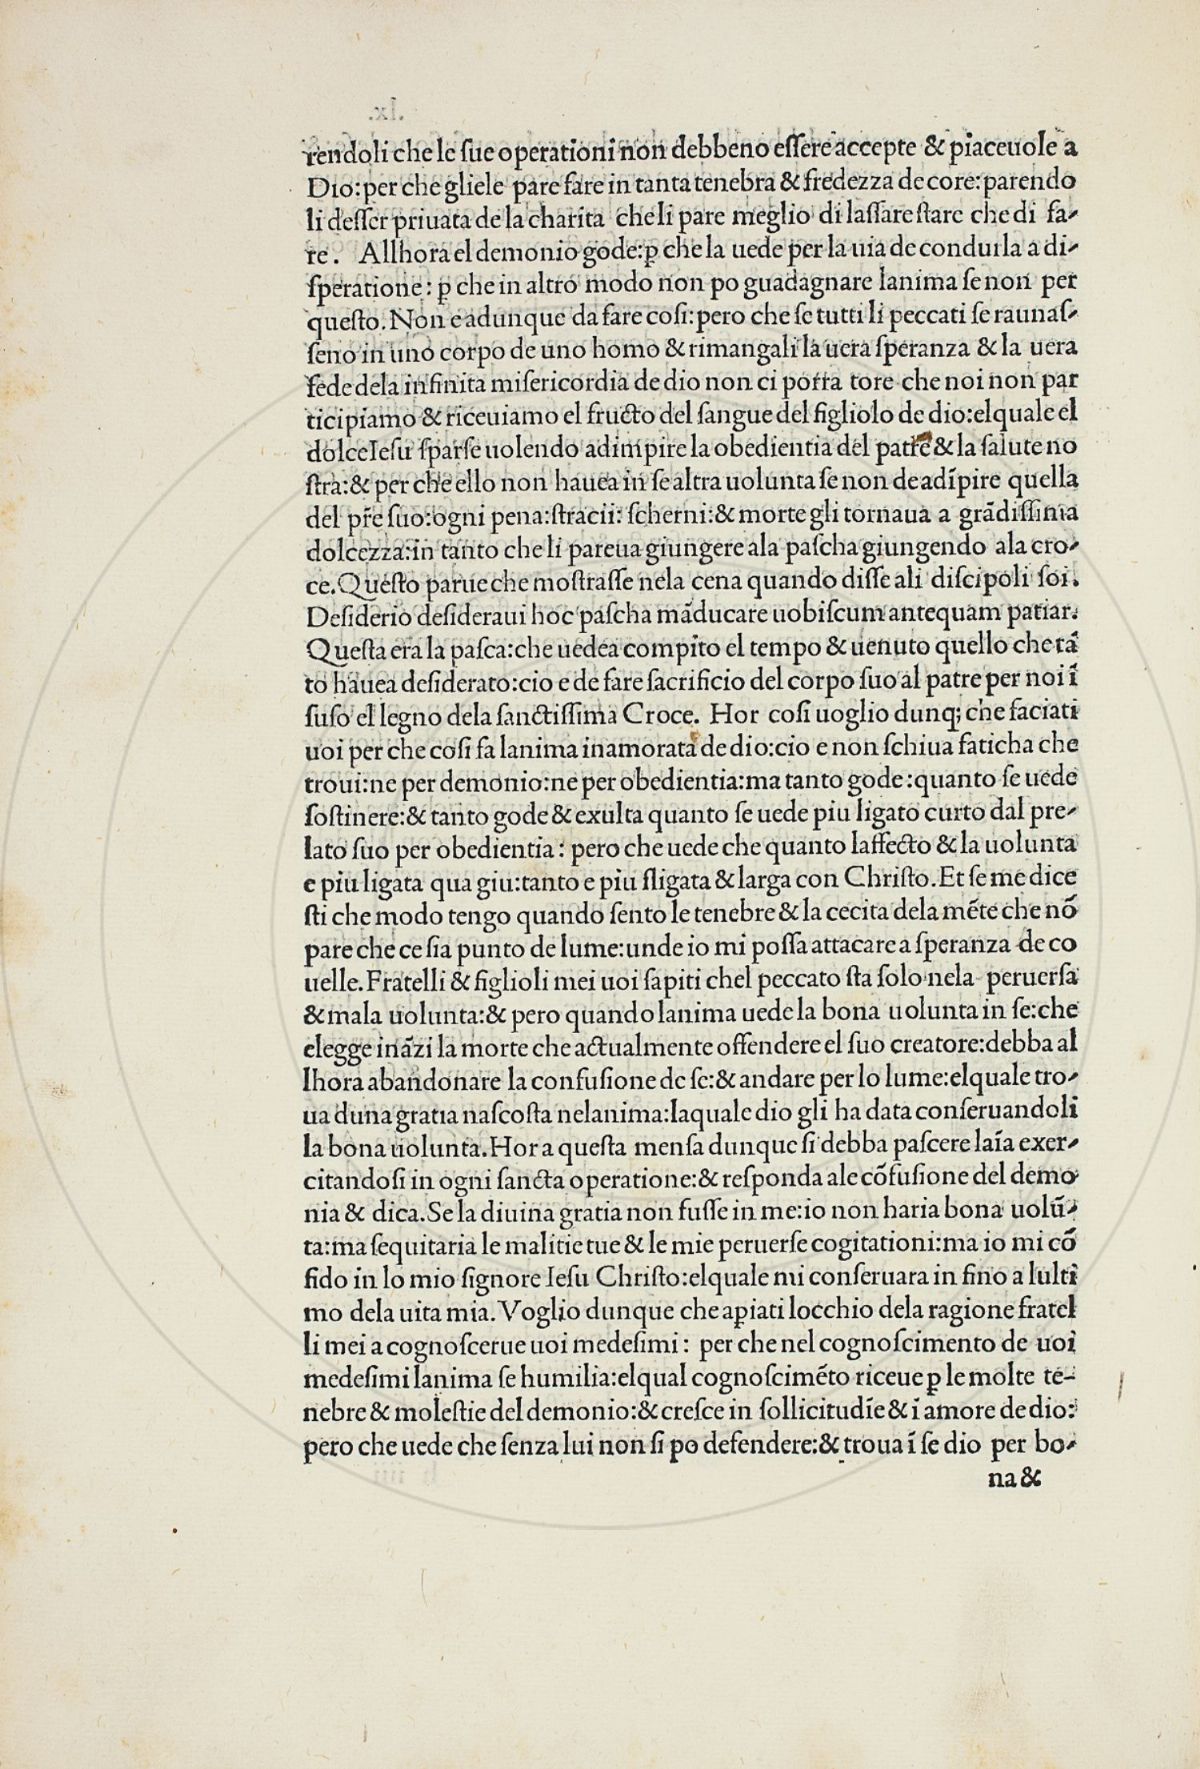 rendoli che le ſue operationi non debbeno eſſere accepte & piaceuole a
Dio: per che gliele pare fare in tanta tenebra & fredezza de core: parendo
li deſſer priuata de la charita che li pare meglio di laſſare ſtare che di fa⸗
re. Allhora el demonio gode: ꝑ che la uede per la uia de conduila a di⸗
ſperatione: ꝑ che in altro modo non po guadagnare lanima ſe non per
queſto. Non e adunque da fare coſi: pero che ſe tutti li peccati ſe raunaſ⸗
ſeno in uno corpo de uno homo & rimangali la uera ſperanza & la uera
fede dela infinita miſericordia de dio non ci porra tore che noi non par
ticipiamo & riceuiamo el fructo del ſangue del figliolo de dio: elquale el
dolce Ieſu ſparſe uolendo adimpire la obedientia del patre & la ſalute no
ſtra: & per che ello non hauea in ſe altra uolunta ſe non de adīpire quella
del pr̄e ſuo: ogni pena: ſtracii: ſcherni: & morte gli tornaua a grādiſſima
dolcezza: in tanto che li pareua giungere ala paſcha giungendo ala cro⸗
ce. Queſto parue che moſtraſſe nela cena quando diſſe ali diſcipoli ſoi.
Deſiderio deſideraui hoc paſcha māducare uobiſcum antequam patiar.
Queſta era la paſca: che uedea compito el tempo & uenuto quello che tā
to hauea deſiderato: cio e de fare ſacrificio del corpo ſuo al patre per noi ī
ſuſo el legno dela ſanctiſſima Croce. Hor coſi uoglio dunq; che faciati
uoi per che coſi fa lanima inamorata de dio: cio e non ſchiua faticha che
troui: ne per demonio: ne per obedientia: ma tanto gode: quanto ſe uede
ſoſtinere: & tanto gode & exulta quanto ſe uede piu ligato curto dal pre⸗
lato ſuo per obedientia: pero che uede che quanto laffecto & la uolunta
e piu ligata qua giu: tanto e piu ſligata & larga con Chriſto. Et ſe me dice
ſti che modo tengo quando ſento le tenebre & la cecita dela mēte che nō
pare che ce ſia punto de lume: unde io mi poſſa attacare a ſperanza de co
uelle. Fratelli & figlioli mei uoi ſapiti chel peccato ſta ſolo nela peruerſa
& mala uolunta: & pero quando lanima uede la bona uolunta in ſe: che
elegge ināzi la morte che actualmente offendere el ſuo creatore: debba al
lhora abandonare la confuſione de ſe: & andare per lo lume: elquale tro⸗
ua duna gratia naſcoſta nelanima: laquale dio gli ha data conſeruandoli
la bona uolunta. Hor a queſta menſa dunque ſi debba paſcere laīa exer⸗
citandoſi in ogni ſancta operatione: & reſponda ale cōfuſione del demo
nia & dica. Se la diuina gratia non fuſſe in me: io non haria bona uolū⸗
ta: ma ſequitaria le malitie tue & le mie peruerſe cogitationi: ma io mi cō
fido in lo mio ſignore Ieſu Chriſto: elquale mi conſeruara in fino a lulti
mo dela uita mia. Voglio dunque che apiati locchio dela ragione fratel
li mei a cognoſcerue uoi medeſimi: per che nel cognoſcimento de uoi
medeſimi lanima ſe humilia: elqual cognoſcimēto riceue ꝑ le molte te-
nebre & moleſtie del demonio: & creſce in ſollicitudīe & ī amore de dio:
pero che uede che ſenza lui non ſi po defendere: & troua ī ſe dio per bo⸗
na &